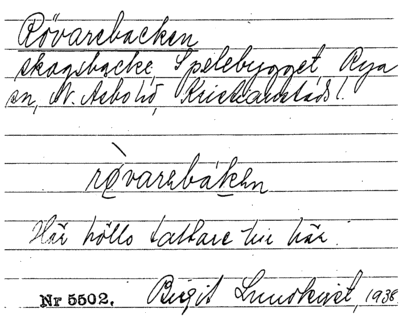 Rövarebacken
skogsbacke, Spelebygget, Rya
sn, N. Åsbo hd, Kristianstads l.
rövarebáken
Här höllo tattare hir här.
Nr 5502. Birgit Lundkvist, 1938